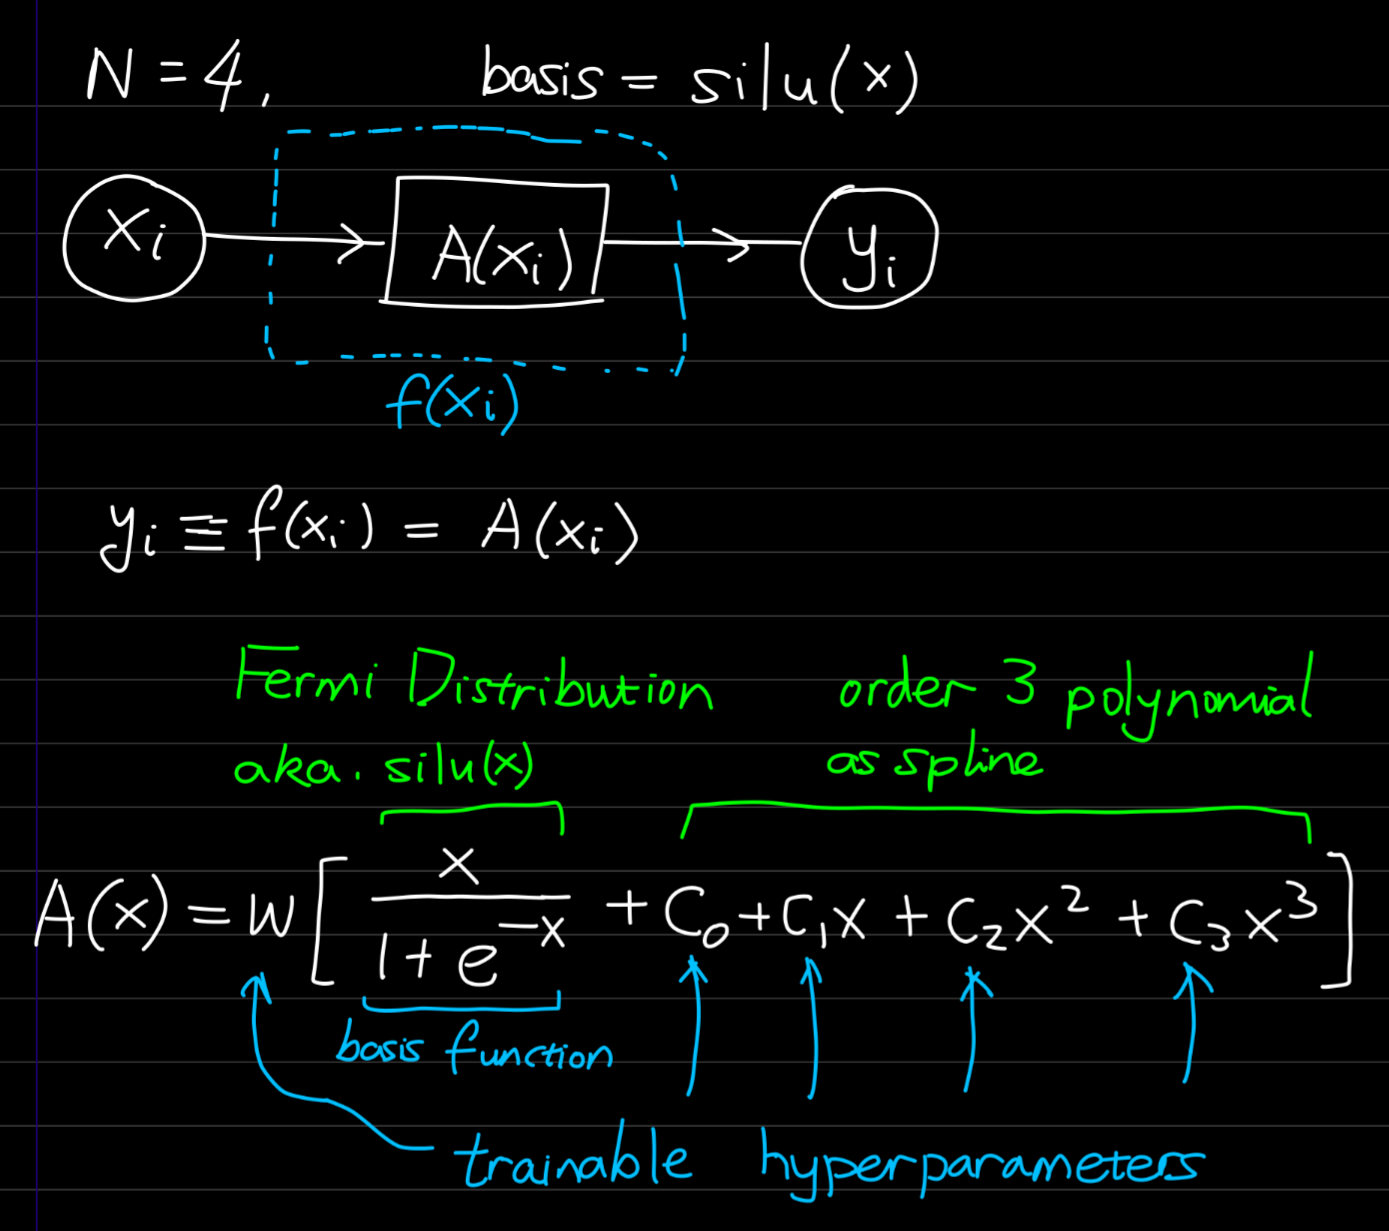 N = 4, basis = silu(x)
xᵢ A(xᵢ) yᵢ
f(xᵢ)
yᵢ ≡ f(xᵢ) = A(xᵢ)
Fermi Distribution
aka. silu(x)
order 3 polynomial
as spline
A(x) = w[x/(1+e^{-x}) + C₀ + C₁x + C₂x² + C₃x³]
basis function
trainable hyperparameters